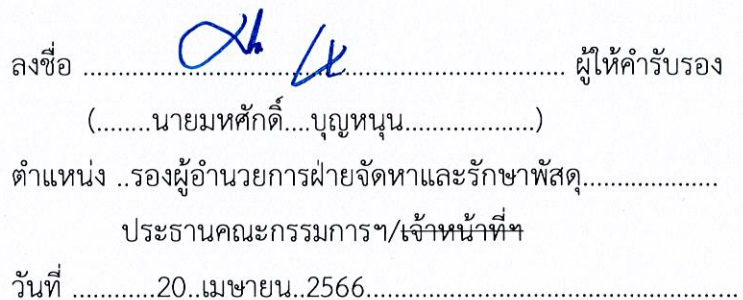 ลงชื่อ ............................................................ ผู้ให้คำรับรอง
(........นายมหศักดิ์....บุญหนุน...................)
ตำแหน่ง ..รองผู้อำนวยการฝ่ายจัดหาและรักษาพัสดุ..................
ประธานคณะกรรมการฯ/เจ้าหน้าที่ฯ
วันที่ ............20..เมษายน..2566.....................................................